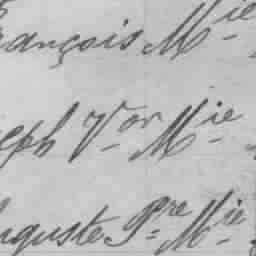 rançois Mie
seph Vor Mie
uguste Pre Mie